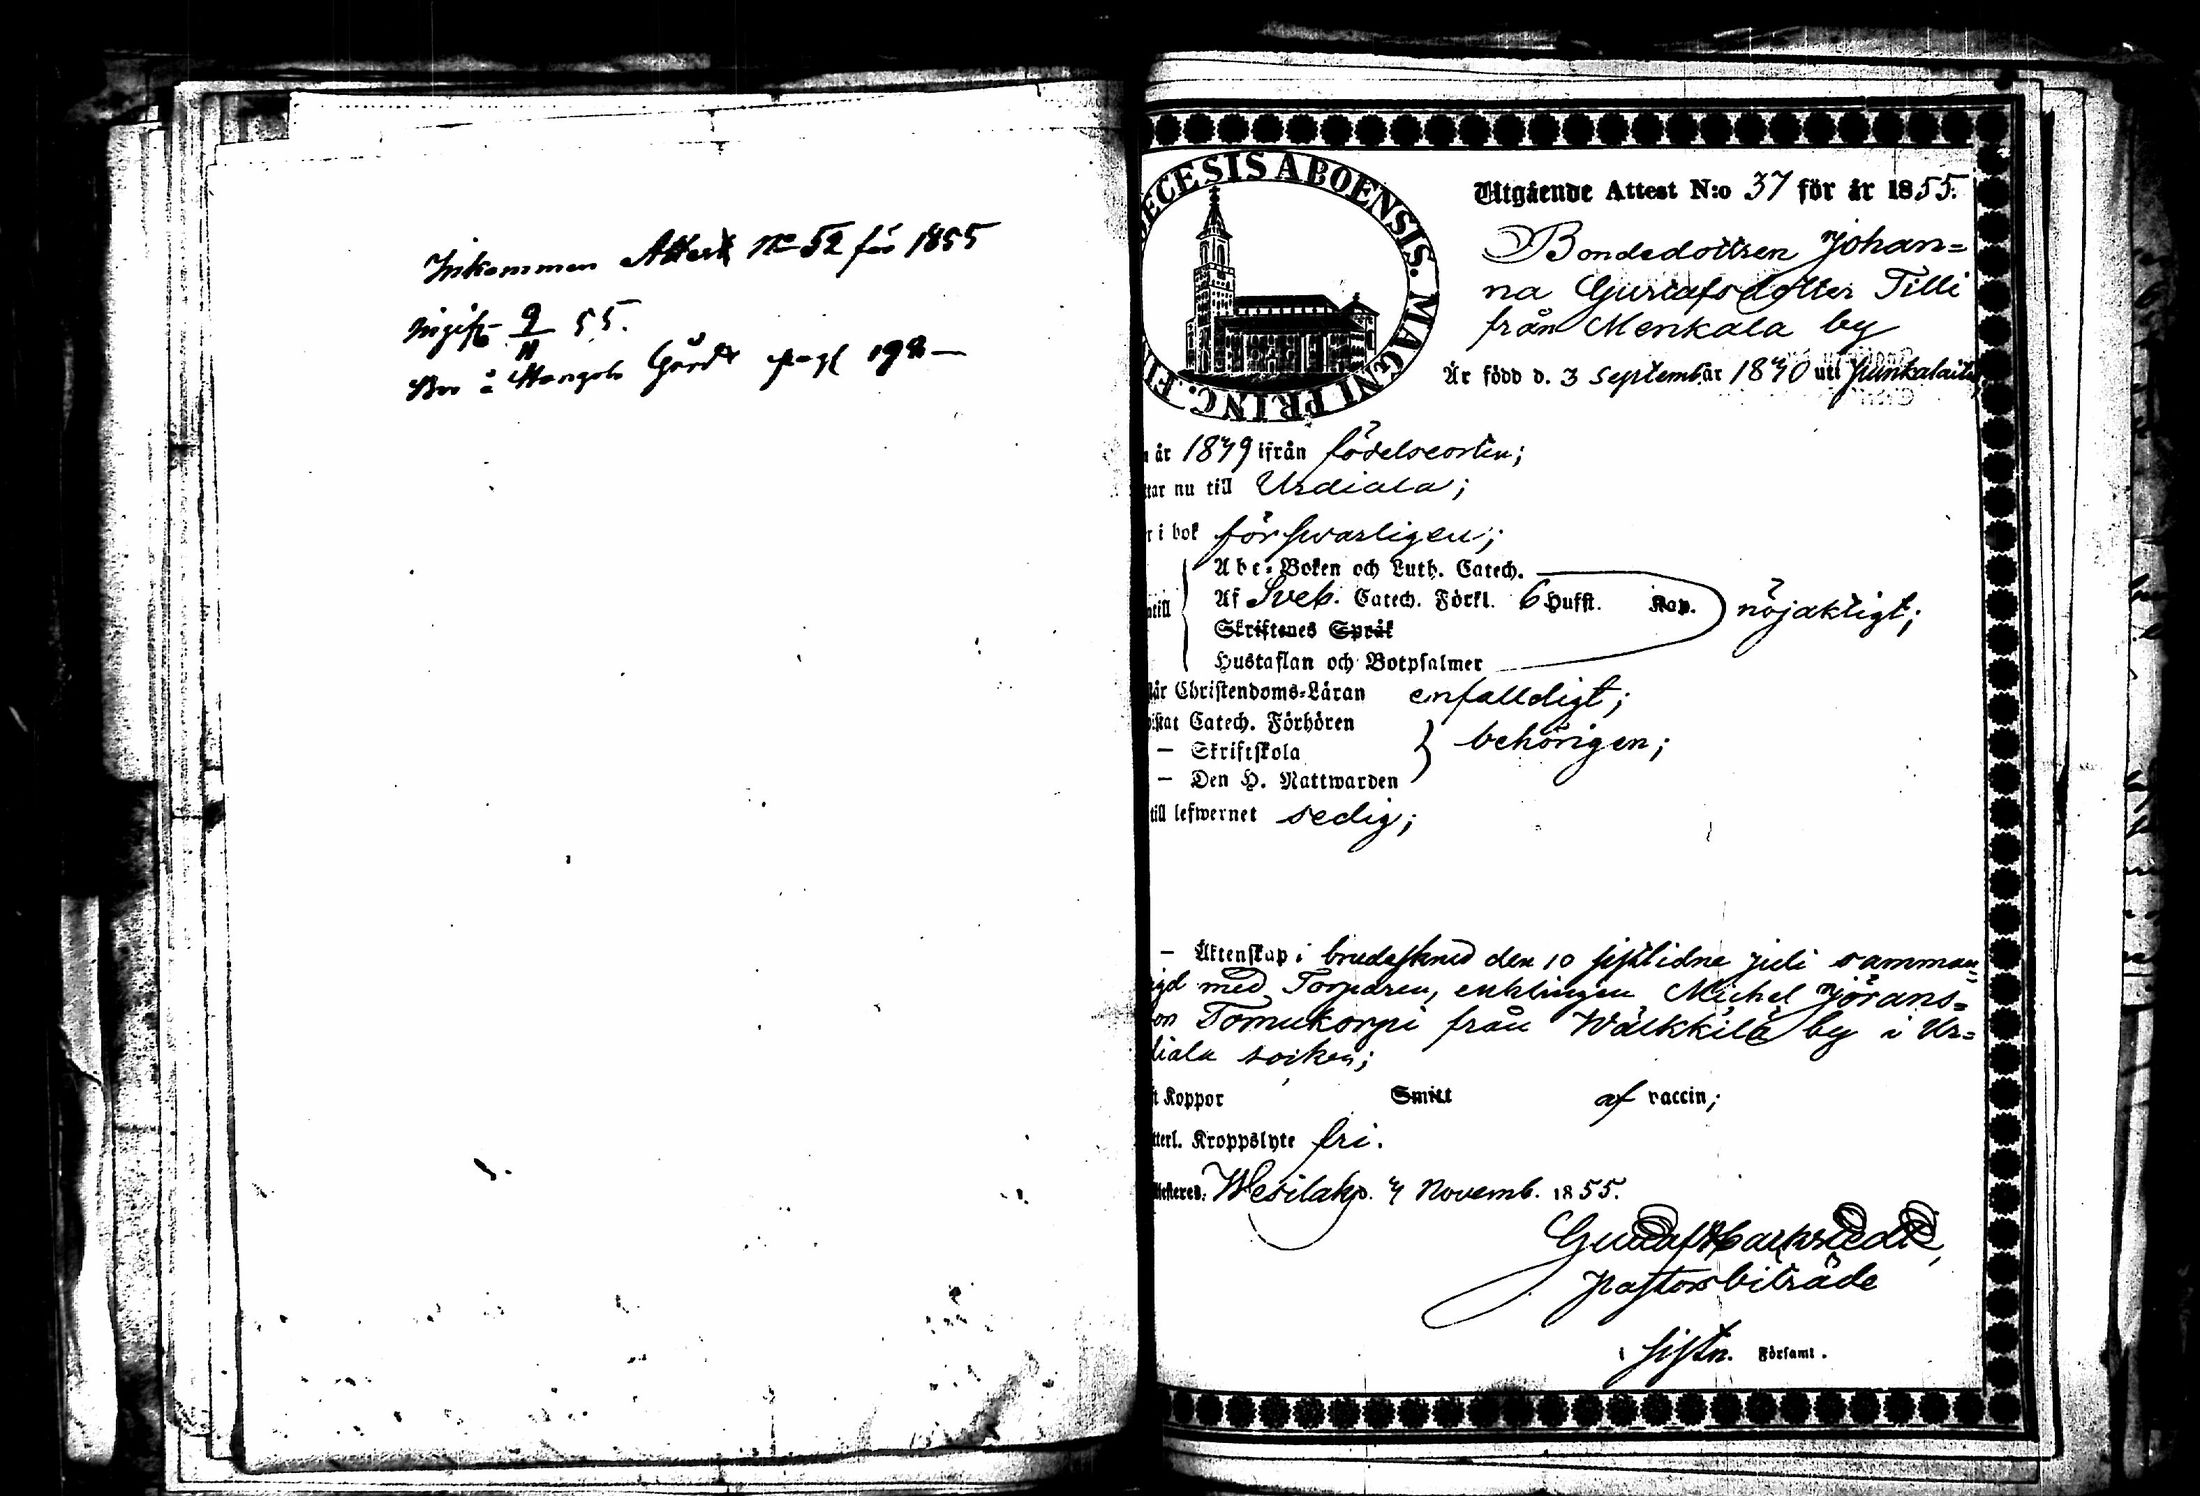 Inkommen Attest No 52 för 1855
Ingift 9/11 55.
Bor å Gård pag 192 —
ECESIS ABOENSIS. MAGNI PRINC. FI
Utgående Attest N:o 37 för år 1855.
Bondedottren Johan=
na Gustafsdotter Tilli
från Menkala by
Är född d. 3 Septemb. år 1830 uti Punkalait
år 1849 ifrån födelseorten;
ttar nu till Urdiala;
r i bok förswarligen;
Abc-Boken och Luth. Catech.
ntill Af Sveb. Catech. Förkl. 6 Hufst. Kap. nöjaktigt;
Skriftenes Språk
Hustaflan och Botpsalmer
står Christendoms-Läran enfalldigt;
wistat Catech. Förhören
— Skriftskola behörigen;
— Den H. Nattwarden
till lefwernet sedig;
— Äktenskap i brudaskrud den 10 sistlidne juli samman=
igd med Torparen, enklingen Michel Jörans=
on Tomukorpi från Wälkkilä by i Ur=
diala socken;
ft Koppor Smitt af vaccin;
tterl. Kroppslyte fri.
ttesteras. Wesilaks d. 7 Novemb. 1855.
Gustaf
Pastorsbiträde
i sistn. Församl.